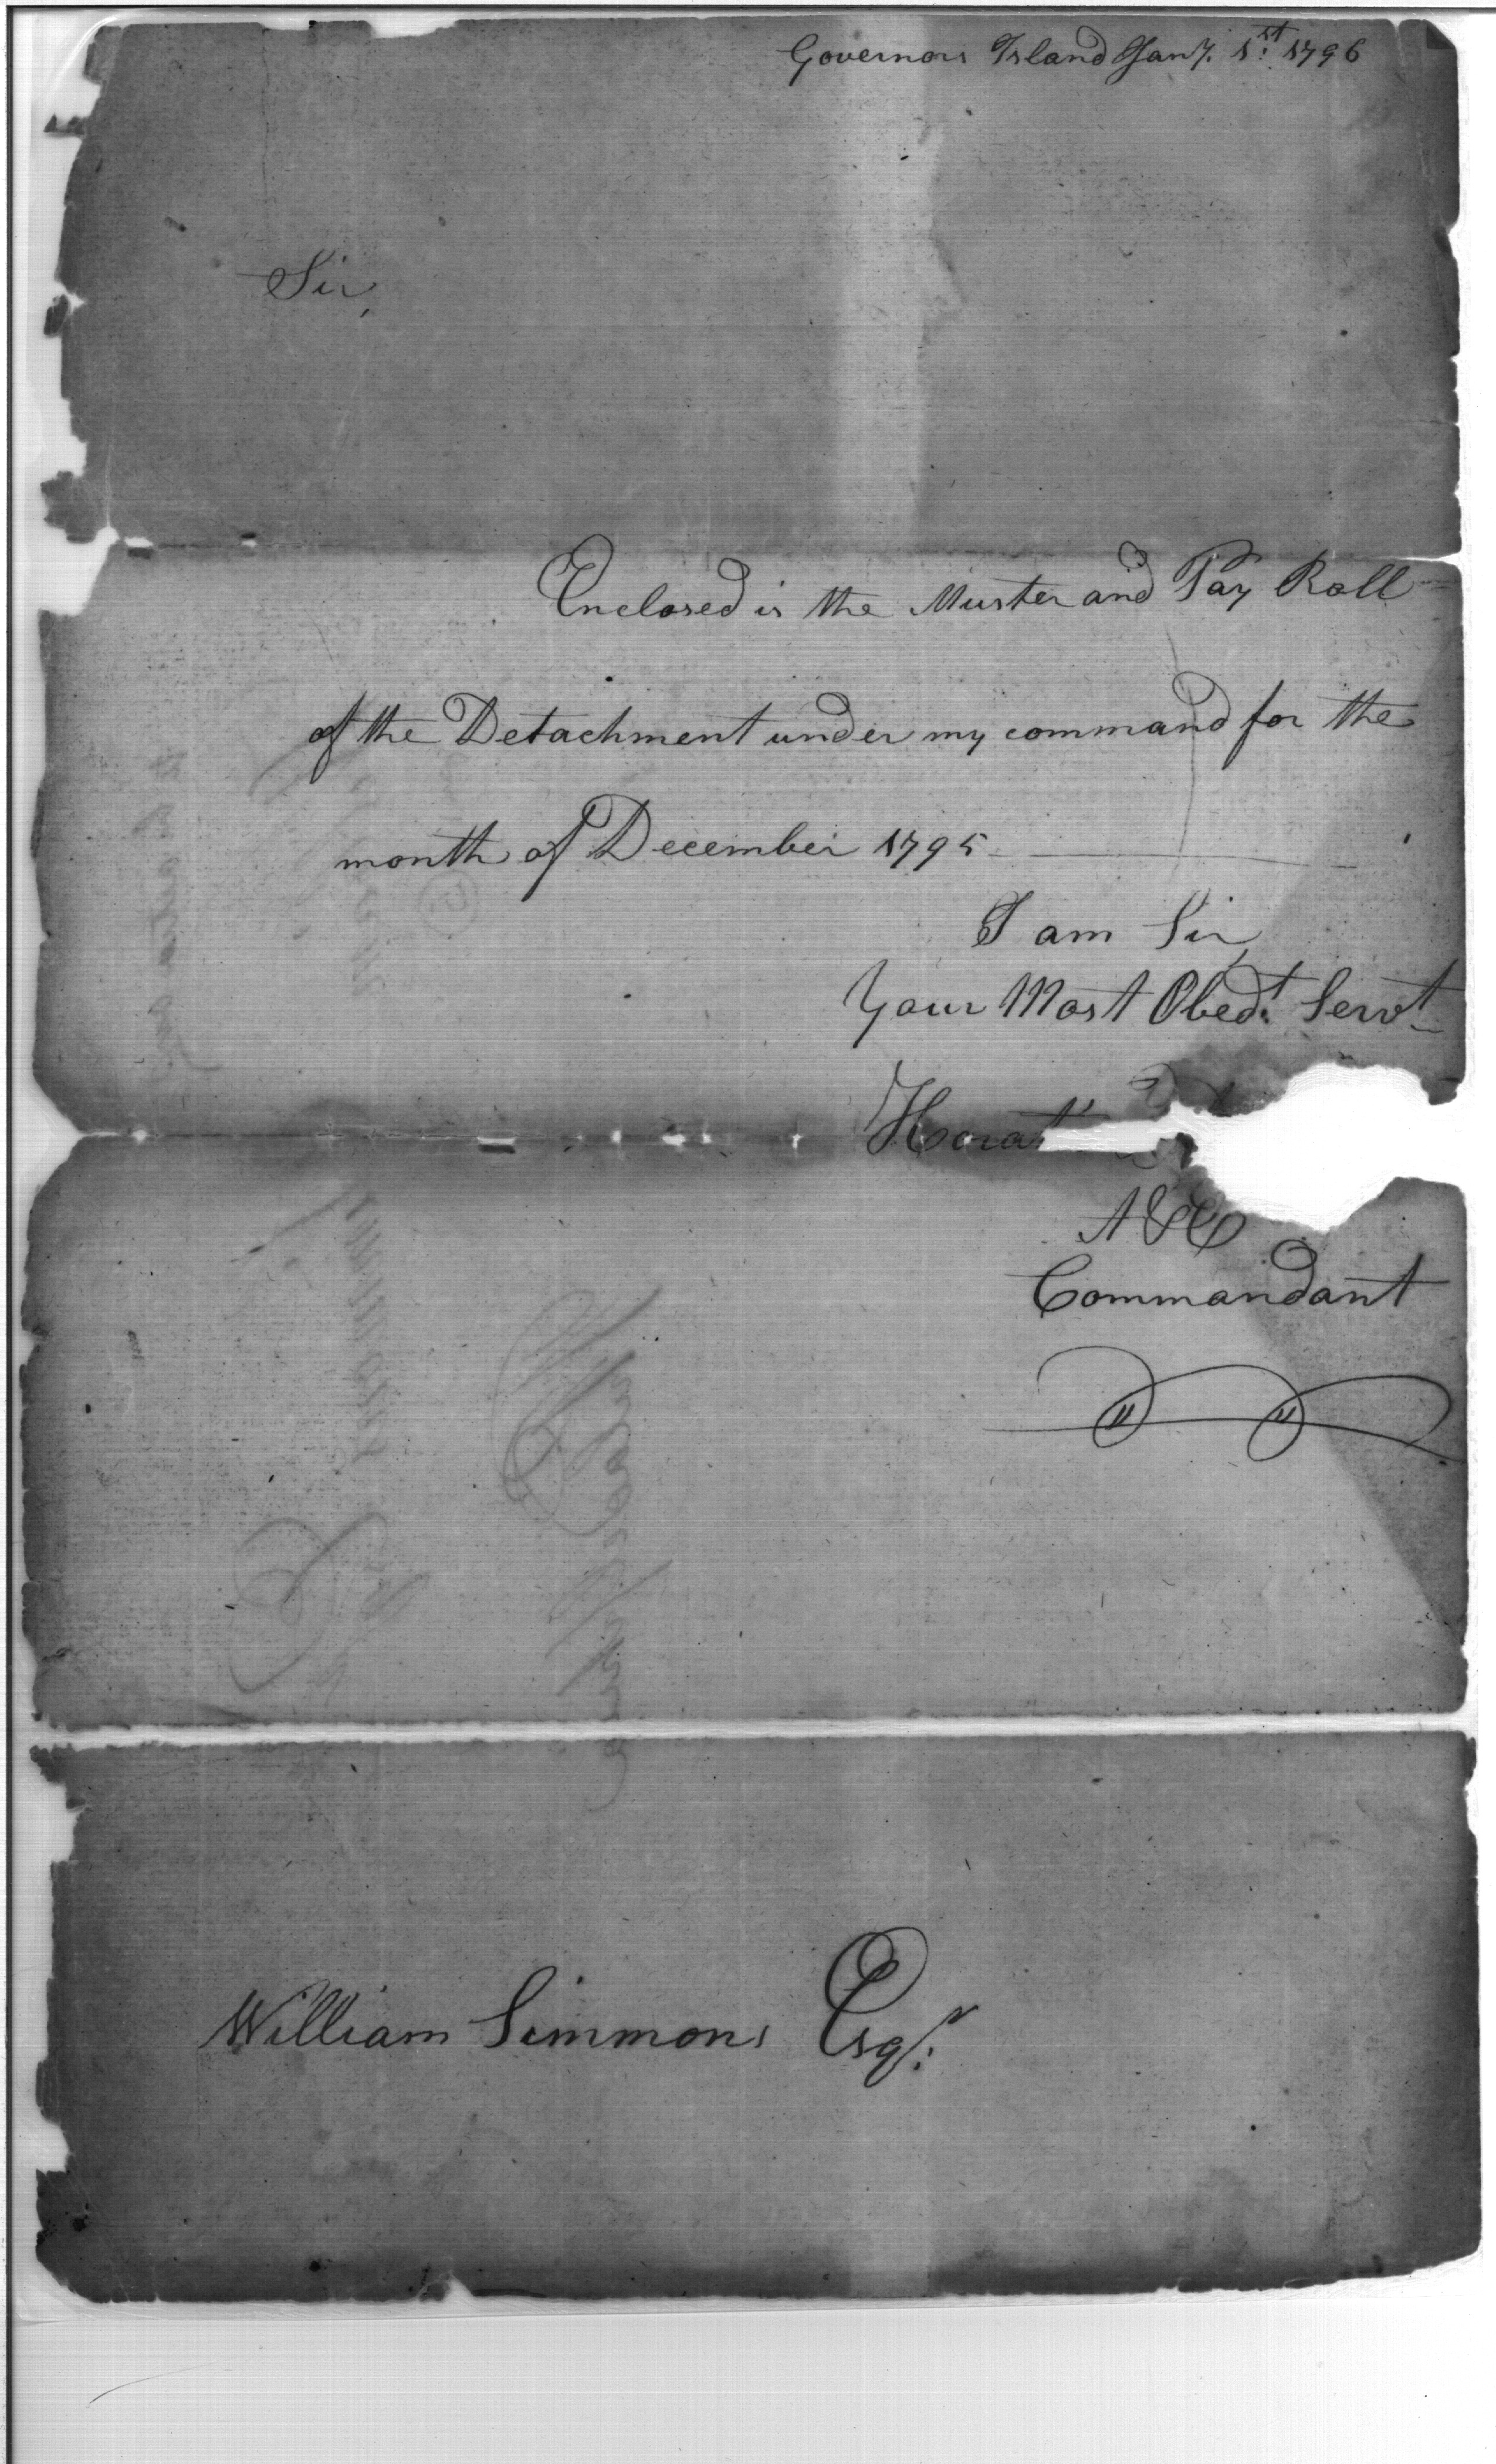 Governors Island Jany. 1st. 1796
Sir,
Enclosed is the Muster and Pay Roll
of the Detachment under my command for the
month of December 1795
I am Sir,
Your Most Obedt. Servt
Horat
A&E
Commandant
William Simmons Esqr.